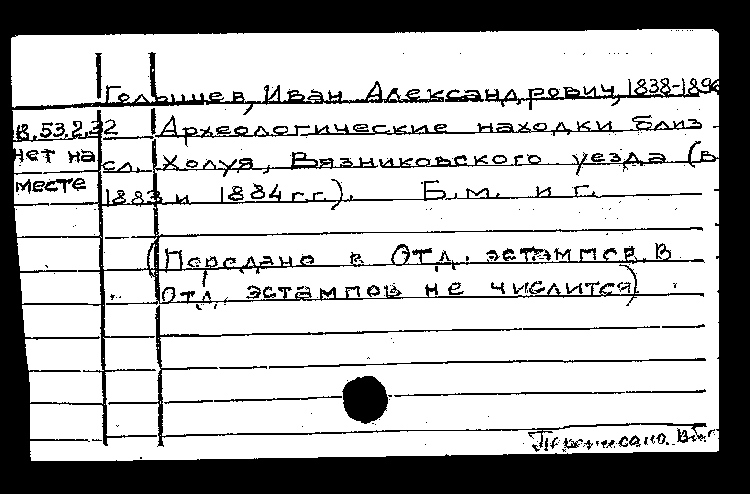 Голышев, Иван Александрович, 1838-1896
В.53.2.32 Археологические находки близ
нет на сл. Холуя, Вязниковского уезда (в
месте 1883 и 1884 г.г.). Б.м. и г.
(Передано в Отд. эстампов. В
Отд. эстампов не числится).
Переписано.